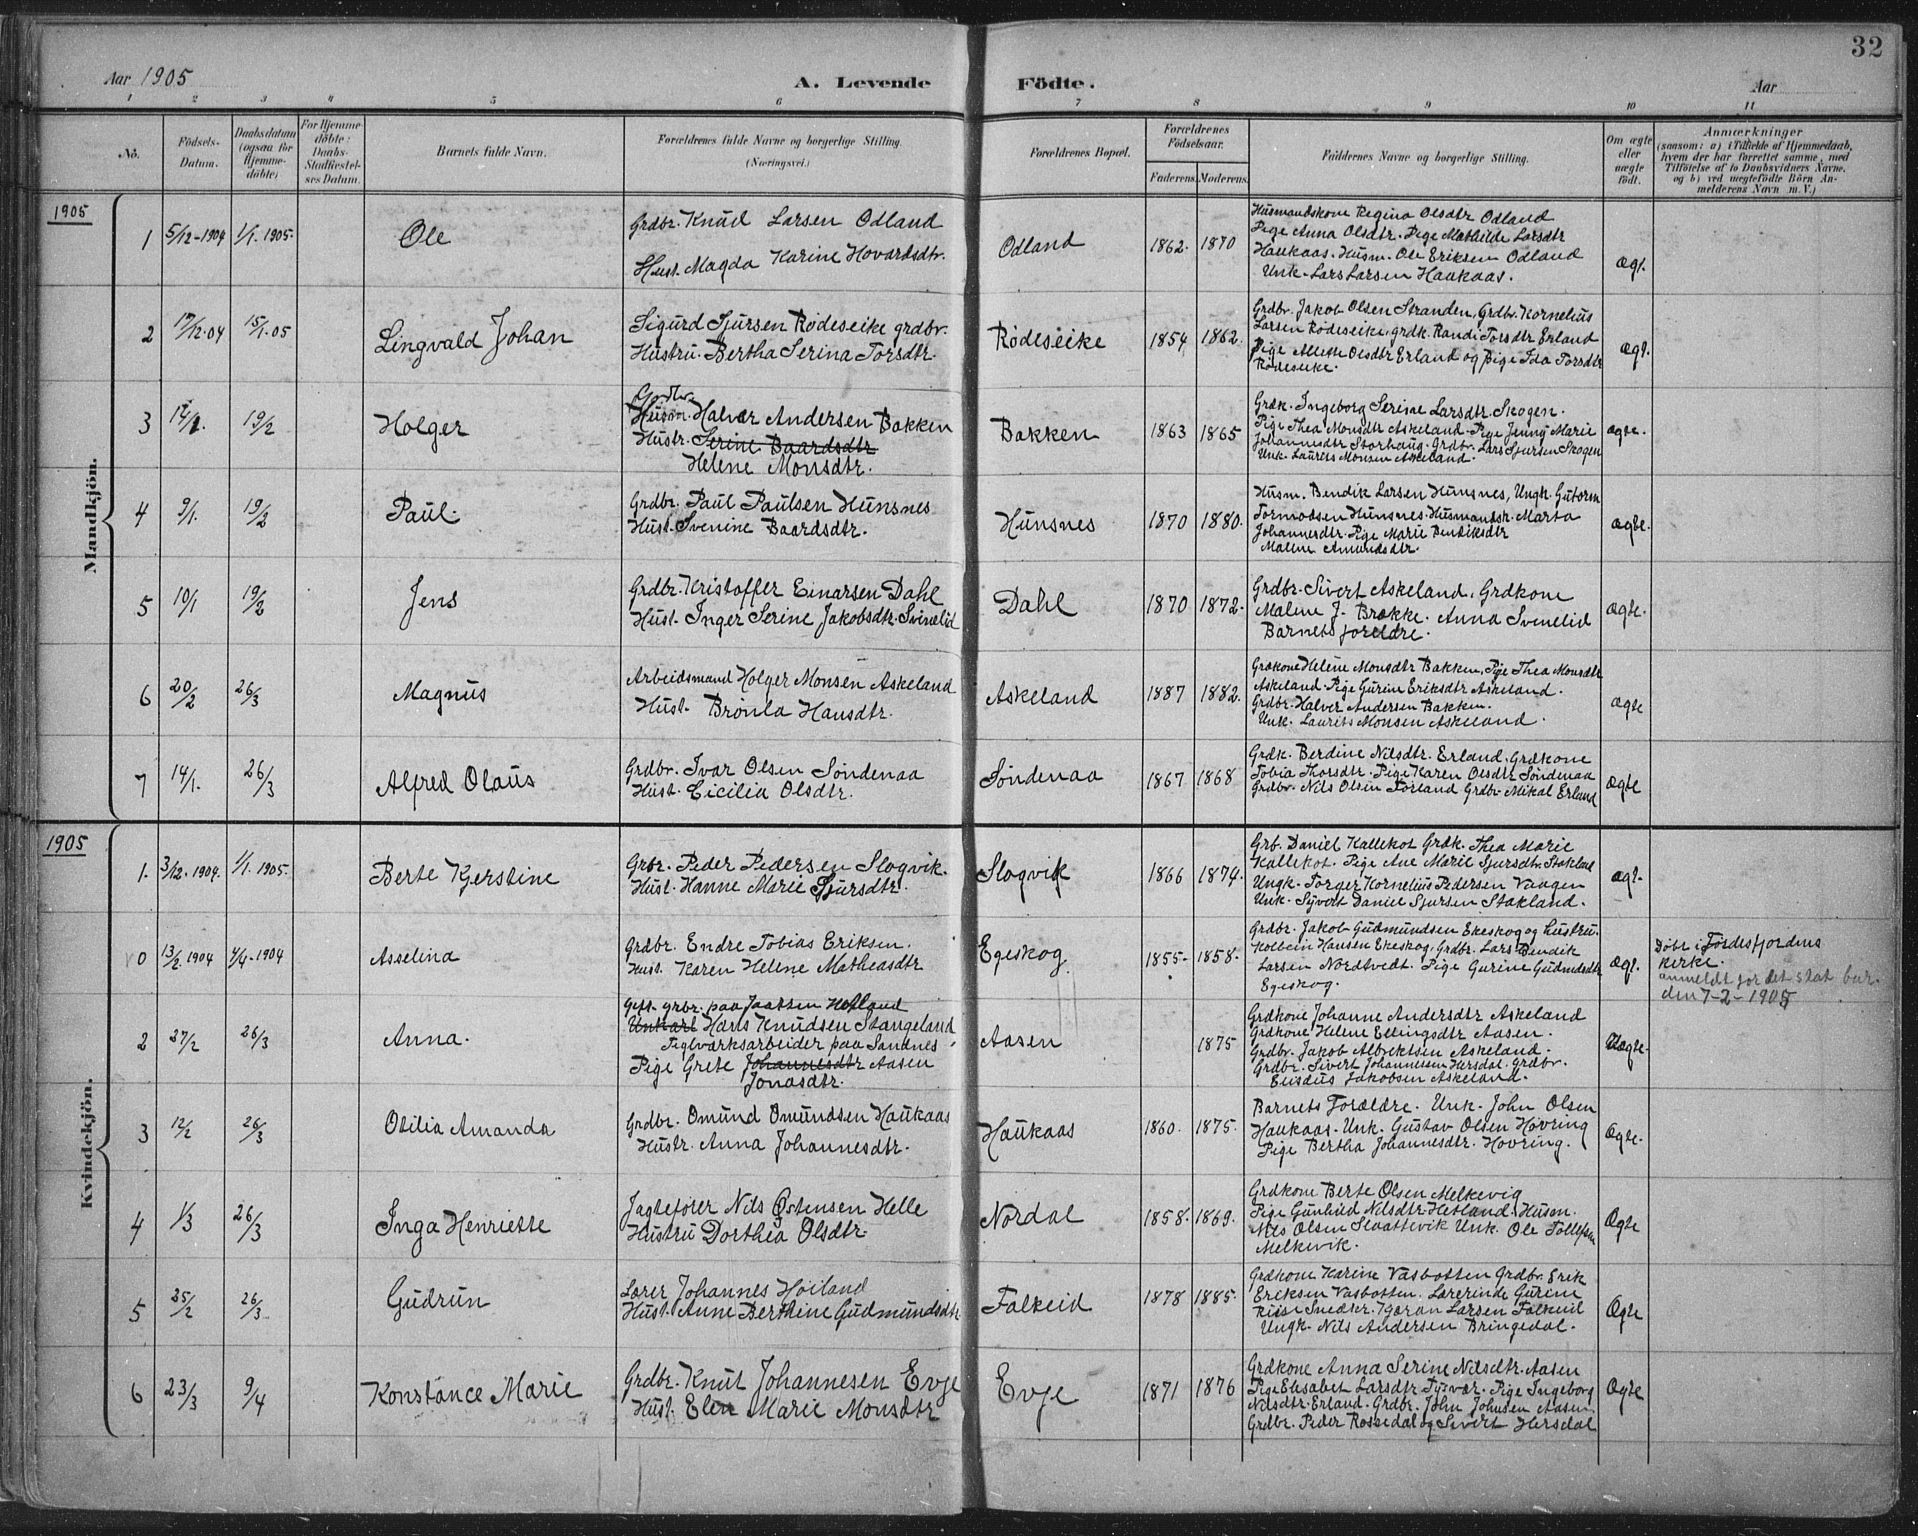 32
Aar 1905 A. Levende Födte. Aar
1 2 3 4 5 6 7 8 9 10 11
No.
Födsels-Datum.
Daabsdatum (ogsaa for Hjemme-döbte)
For Hjemme-döbte: Daabs-Stadfæstel-ses Datum.
Barnets fulde Navn.
Forældrenes fulde Navne og borgerlige Stilling. (Næringsvei.)
Forældrenes Bopæl.
Forældrenes Födselsaar.
Faderens. Moderens.
Faddernes Navne og borgerlige Stilling.
Om ægte eller uægte födt.
Anmærkninger
(saasom: a) i Tilfælde af Hjemmedaab, hvem der har forrettet samme, med Tilföielse af to Daabsvidners Navne. og b) ved uægtefödte Börn An-melderens Navn m. V.)
Mandkjön.
1905
1 5/12-1904 1/1.1905. Ole
Grdbr. Knud Larsen Odland
Hust. Magda Karine Hovardsdtr.
Odland 1862. 1870
Husmandskone Regina Olsdtr Odland
Pige Anna Olsdtr. Pige Mathilde Larsdtr
Haukaas. Husm. Ole Eriksen Odland
Unk. Lars Larsen Haukaas.
ægt.
2 17/12.04 15/1.05 Lingvald Johan
Sigurd Sjursen Rødeseike grdbr.
Hustru. Bertha Serina Torsdtr.
Rødeseike 1854 1862.
Grdbr. Jakob Olsen Stranden, Grdbr. Kornelius
Larsen Rødeseike, grdk. Randi Torsdtr Erland
Pige Mette Olsdtr Erland og Pige Ida Torsdtr
Rødeseike.
ægt.
3 14/1. 19/2 Holger
Grdbr.
Husm. Halvor Andersen Bakken
Hustr. Serine Baardsdtr
Helene Monsdtr.
Bakken 1863 1865
Grdk. Ingeborg Serine Larsdtr. Skogen.
Pige Thea Monsdtr Askeland. Pige Jenny Marie
Johannesdtr Storhaug. Grdbr. Lars Sjursen Skogen
Unk. Laurits Monsen Askeland.
ægte.
4 9/1. 19/2 Paul.
Grdbr. Paul Paulsen Hunsnes
Hust. Svenine Baardsdtr.
Hunsnes 1870 1880.
Husm. Bendik Larsen Hunsnes, Ungk. Gutorm
Tormodsen Hunsnes. Husmandsk. Marta
Johannesdtr. Pige Marie Bendiksdtr
Malene Amundsdtr.
ægte.
5 10/1 19/2 Jens
Grdbr. Kristoffer Einarsen Dahl
Hust. Inger Serine Jakobsdtr. Svinelid
Dahl 1870 1872.
Grdbr. Sivert Askeland, Grdkone
Malene J. Brække. Anna Svinelid
Barnets foreldre.
ægte.
6 20/2 26/3 Magnus
Arbeidsmand Holger Monsen Askeland
Hust. Brønla Hansdtr.
Askeland 1887 1882.
Grdkone Helene Monsdtr Bakken, Pige Thea Monsdtr
Askeland. Pige Gurine Eriksdtr Askeland.
Grdbr. Halver Andersen Bakken.
Unk. Laurits Monsen Askeland.
ægte
7 14/1. 26/3 Alfred Olaus
Grdbr. Ivar Olsen Søndenaa
Hust. Cicilia Olsdtr.
Søndenaa 1867 1868
Grdk. Berdine Nilsdtr. Erland. Grdkone
Tobia Thorsdtr. Pige Karen Olsdtr Søndenaa
Grdbr. Nils Olsen Førland Grdbr. Mikal Erland
Ægte
Kvindekjön.
1905
1. 3/12.1904. 1/1.1905. Berte Kjerstine
Grbr. Peder Pedersen Slogvik.
Hust. Hanne Marie Sjursdtr.
Slogvik 1866 1874.
Grb. Daniel Kallekot Grdk. Thea Marie
Kallekot. Pige Ane Marie Sjursdtr Stakland
Ungk. Torger Kornelius Pedersen Vaagen
Unk. Syvert Daniel Sjursen Stakland.
ægt.
0 13/2.1904 4/4-1904 Asselina
Grdbr. Endre Tobias Eriksen.
Hust. Karen Helene Matheasdtr
Egeskog 1855- 1858.
Grdbr. Jakob Gudmundsen Ekeskog og hustru.
Kolbein Hansen Ekeskog, Grdbr. Lars Bendik
Larsen Nordtvedt. Pige Gurine Gudmdsdtr
Egeskog.
ægt.
Døbt i Førdesfjordens
kirke.
anmeldt for det stat. bur.
den 7-2-1905
2 27/2 26/3 Anna.
Gift. grbr. paa Jaatten Hetland
Unkarl Hans Knudsen Stangeland
Teglværksarbeider paa Sandnes
Pige Grete Johannesdtr Aasen
Jonasdtr.
Aasen 1875
Grdkone Johanne Andersdtr Askeland
Grdkone Helene Ellingsdtr Aasen.
Grdbr. Jakob Albrektsen Askeland.
Grdbr. Sivert Johannesen Hersdal. grdbr.
Endus Jakobsen Askeland.
Uægte.
3 12/2 26/3 Otilia Amanda
Grdbr. Omund Omundsen Haukaas
Hustr. Anna Johannesdtr.
Haukaas 1860. 1875.
Barnets Forældre. Unk. John Olsen
Haukaas. Unk. Gustav Olsen Hovring
Pige Bertha Johannesdtr. Hovring.
Ægte.
4 1/3 26/3 Inga Henriette
Jagtefører Nils Østensen Helle
Hustru Dorthea Olsdtr.
Nordal 1858. 1869.
Grdkone Berte Olsen Melkevig
Pige Gunhild Nilsdtr Hetland. Husm.
Nils Olsen Slaattevik Unk. Ole Tollefsen
Melkevik.
Ægte
5 25/2 26/3 Gudrun
Lærer Johannes Høiland
Hust. Anne Berthine Gudmundsdtr
Falkeid 1878 1885.
Grdkone Karine Vasbotten Grdbr. Erik
Eriksen Vasbotten. Lærerinde Gurine
Snedkr. Gøran Larsen Falkeid
Ungk. Nils Andersen Bringedal.
Ægte
6 23/3 9/4 Konstance Marie
Grdbr. Knut Johannesen Evje
Hust. Elen Marie Monsdtr
Evje 1871 1876
Grdkone Anna Serine Nilsdtr. Aasen
Pige Elisabet Larsdtr Tysvær. Pige Ingeborg
Nilsdtr. Erland. Grdbr. John Johnsen Aasen.
Grdbr. Peder Rossedal og Sivert Hersdal
Ægte